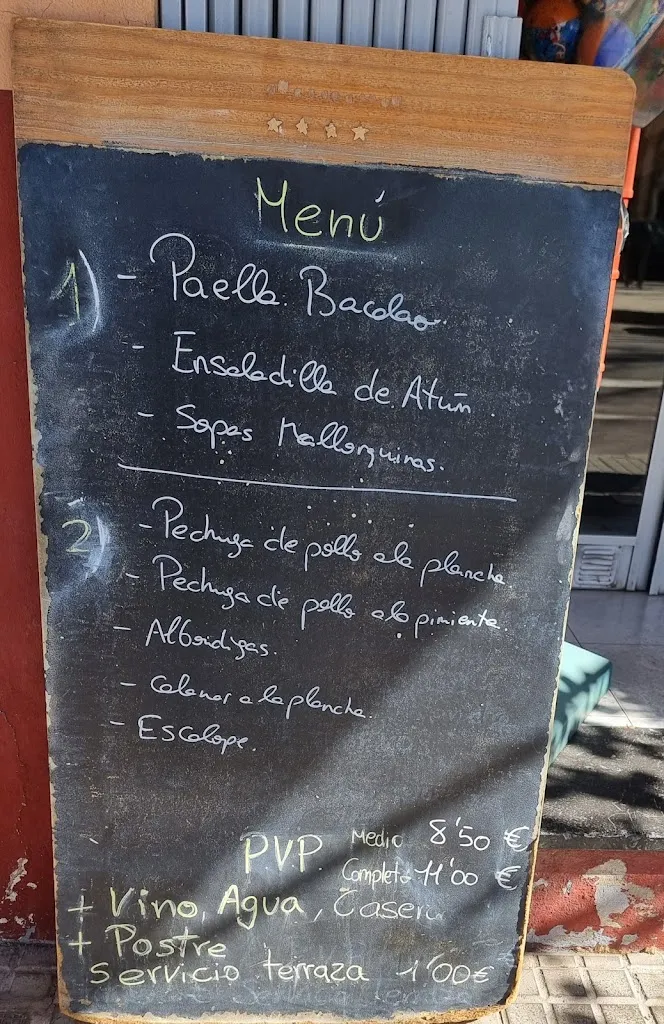 Menú
1) - Paella. Bacalao.
- Ensaladilla de Atún
- Sopas Mallorquinas.
2) - Pechuga de pollo a la plancha
- Pechuga de pollo a la pimienta.
- Albondigas.
- Calamar a la plancha.
- Escalope.
P.V.P. Medio 8'50 €
Completo 11'00 €
+ Vino, Agua, Casera
+ Postre
servicio terraza 1'00€